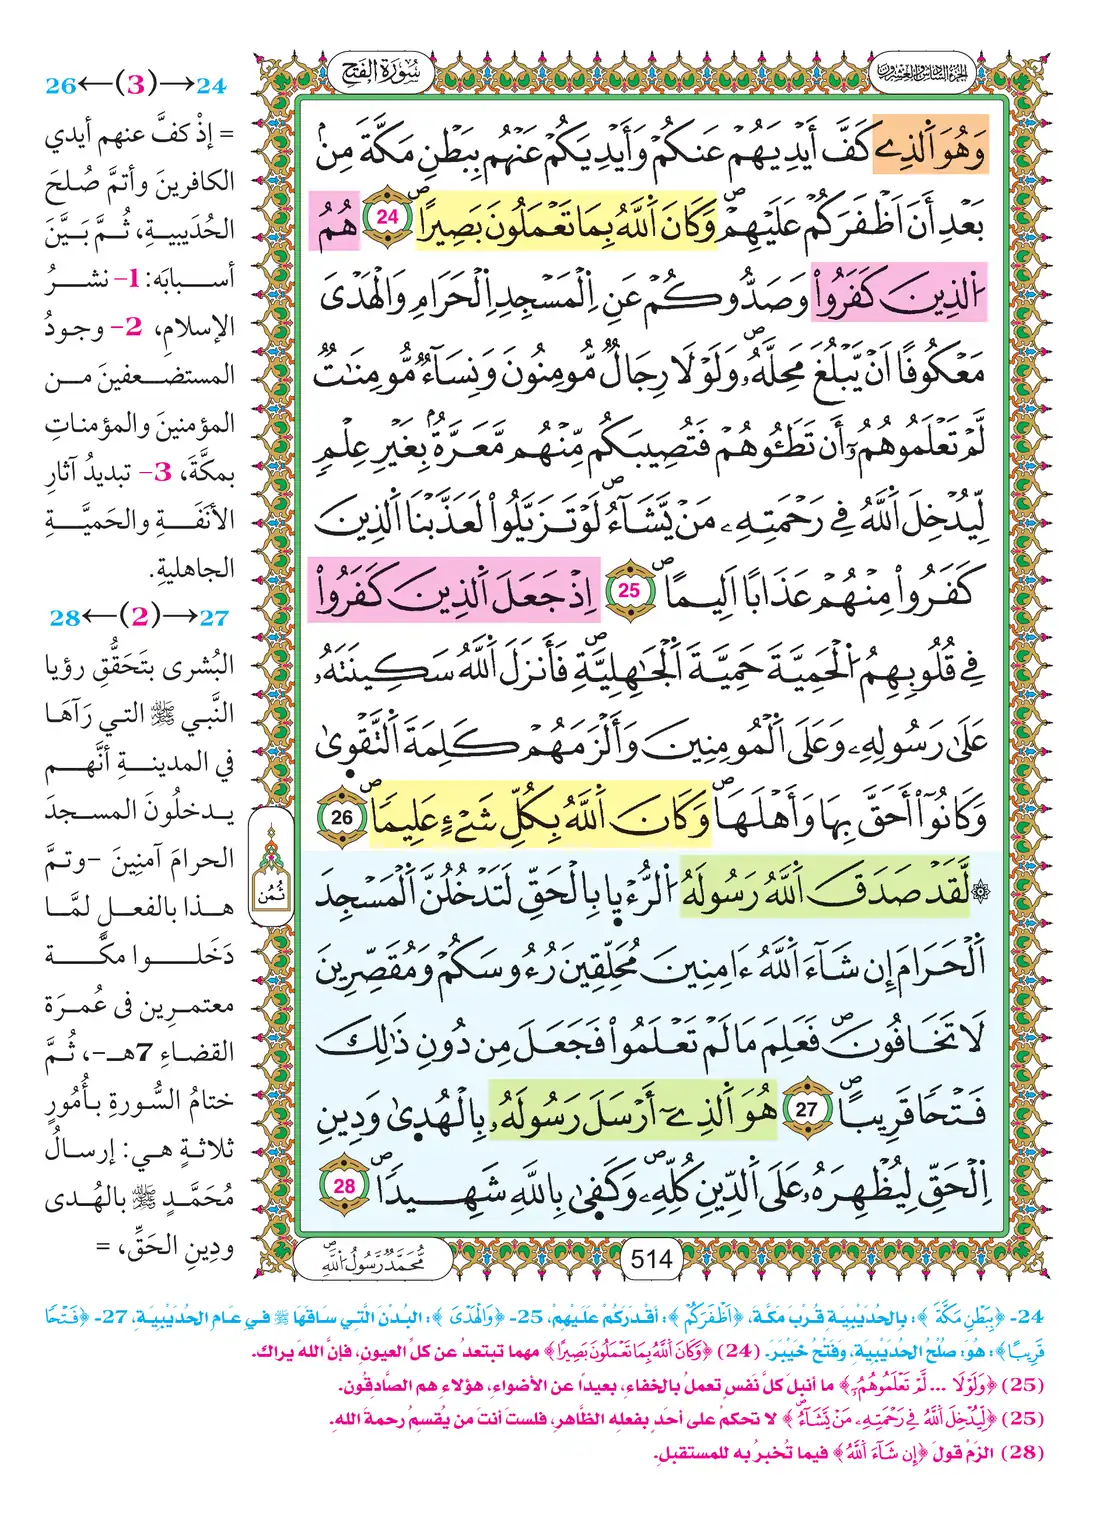 الجزء السادس والعشرون
سُورَةُ الفَتْحِ
وَهُوَ اَ۬لذِے كَفَّ أَيْدِيَهُمْ عَنكُمْ وَأَيْدِيَكُمْ عَنْهُم بِبَطْنِ مَكَّةَ مِنۢ
بَعْدِ أَنَ اَظْفَرَكُمْ عَلَيْهِمْۖ وَكَانَ اَ۬للَّهُ بِمَا تَعْمَلُونَ بَصِيراًۖ 24 هُمُ
اُ۬لذِينَ كَفَرُواْ وَصَدُّوكُمْ عَنِ اِ۬لْمَسْجِدِ اِ۬لْحَرَامِ وَالْهَدْىَ
مَعْكُوفاً اَنْ يَّبْلُغَ مَحِلَّهُۥۖ وَلَوْلَا رِجَالٌ مُّومِنُونَ وَنِسَآءٌ مُّومِنَٰتٌ
لَّمْ تَعْلَمُوهُمُۥٓ أَن تَطَـُٔوهُمْ فَتُصِيبَكُم مِّنْهُم مَّعَرَّةُۢ بِغَيْرِ عِلْمٍ
لِّيُدْخِلَ اَ۬للَّهُ فِے رَحْمَتِهِۦ مَنْ يَّشَآءُۖ لَوْ تَزَيَّلُواْ لَعَذَّبْنَا اَ۬لذِينَ
كَفَرُواْ مِنْهُمْ عَذَاباً اَلِيماًۖ 25 إِذْ جَعَلَ اَ۬لذِينَ كَفَرُواْ
فِے قُلُوبِهِمُ اُ۬لْحَمِيَّةَ حَمِيَّةَ اَ۬لْجَٰهِلِيَّةِۖ فَأَنزَلَ اَ۬للَّهُ سَكِينَتَهُۥ
عَلَىٰ رَسُولِهِۦ وَعَلَى اَ۬لْمُومِنِينَ وَأَلْزَمَهُمْ كَلِمَةَ اَ۬لتَّقْوٜىٰ
وَكَانُوٓاْ أَحَقَّ بِهَا وَأَهْلَهَاۖ وَكَانَ اَ۬للَّهُ بِكُلِّ شَےْءٍ عَلِيماًۖ 26
۞لَّقَدْ صَدَقَ اَ۬للَّهُ رَسُولَهُ اُ۬لرُّءْيٜا بِالْحَقِّ لَتَدْخُلُنَّ اَ۬لْمَسْجِدَ
اَ۬لْحَرَامَ إِن شَآءَ اَ۬للَّهُ ءَامِنِينَ مُحَلِّقِينَ رُءُوسَكُمْ وَمُقَصِّرِينَ
لَا تَخَافُونَۖ فَعَلِمَ مَا لَمْ تَعْلَمُواْ فَجَعَلَ مِن دُونِ ذَٰلِكَ
فَتْحاً قَرِيباًۖ 27 هُوَ اَ۬لذِےٓ أَرْسَلَ رَسُولَهُۥ بِالْهُدٜىٰ وَدِينِ
اِ۬لْحَقِّ لِيُظْهِرَهُۥ عَلَى اَ۬لدِّينِ كُلِّهِۦۖ وَكَفٜىٰ بِاللَّهِ شَهِيداًۖ 28
ثُمُن
514
مُّحَمَّدٌ رَّسُولُ اُ۬للَّهِۖ
24→(3)←26
= إذْ كفَّ عنهم أيدي
الكافرينَ وأتمَّ صُلحَ
الحُدَيبيةِ، ثُمَّ بَيَّنَ
أسبابَه: 1- نشرُ
الإسلامِ، 2- وجودُ
المستضعفينَ من
المؤمنينَ والمؤمناتِ
بمكَّةَ، 3- تبديدُ آثارِ
الأنَفَةِ والحَميَّةِ
الجاهليةِ.
27→(2)←28
البُشرى بتَحَقُّقِ رؤيا
النَّبي ﷺ التي رَآهَا
في المدينةِ أنَّهم
يدخلُونَ المسجدَ
الحرامَ آمنِينَ -وتمَّ
هذا بالفعلِ لمَّا
دَخَلوا مكَّةَ
معتمرِين فى عُمرَة
القضاءِ 7هـ-، ثُمَّ
ختامُ السُّورةِ بأُمُورٍ
ثلاثةٍ هي: إرسالُ
مُحَمَّدٍ ﷺ بالهُدى
ودِينِ الحَقِّ، =
24- ﴿بِبَطْنِ مَكَّةَ﴾: بالحُدَيْبِيَةِ قُرْبَ مَكَّةَ، ﴿أَظْفَرَكُمْ﴾: أقْدَرَكُمْ عَلَيْهِمْ، 25- ﴿وَالْهَدْىَ﴾: البُدْنَ الَّتِي سَاقَهَا ﷺ فِي عَامِ الحُدَيْبِيَةِ، 27- ﴿فَتْحًا
قَرِيبًا﴾: هُوَ: صُلْحُ الحُدَيْبِيَةِ، وَفَتْحُ خَيْبَرَ. (24) ﴿وَكَانَ اللَّهُ بِمَا تَعْمَلُونَ بَصِيرًا﴾ مهما تبتعدُ عن كلِّ العيونِ، فإنَّ اللهَ يراكَ.
(25) ﴿وَلَوْلَا ... لَّمْ تَعْلَمُوهُمُۥٓ﴾ ما أنبلَ كلَّ نفسٍ تعملُ بالخفاءِ، بعيدًا عن الأضواءِ، هؤلاءِ هم الصَّادقُون.
(25) ﴿لِّيُدْخِلَ اَ۬للَّهُ فِے رَحْمَتِهِۦ مَنْ يَّشَآءُۖ﴾ لا تحكمْ على أحدٍ بفعلِه الظَّاهرِ، فلستَ أنتَ من يُقسِمُ رحمةَ اللهِ.
(28) الزمْ قولَ ﴿إِن شَآءَ اَ۬للَّهُ﴾ فيما تُخبرُ به للمستقبلِ.